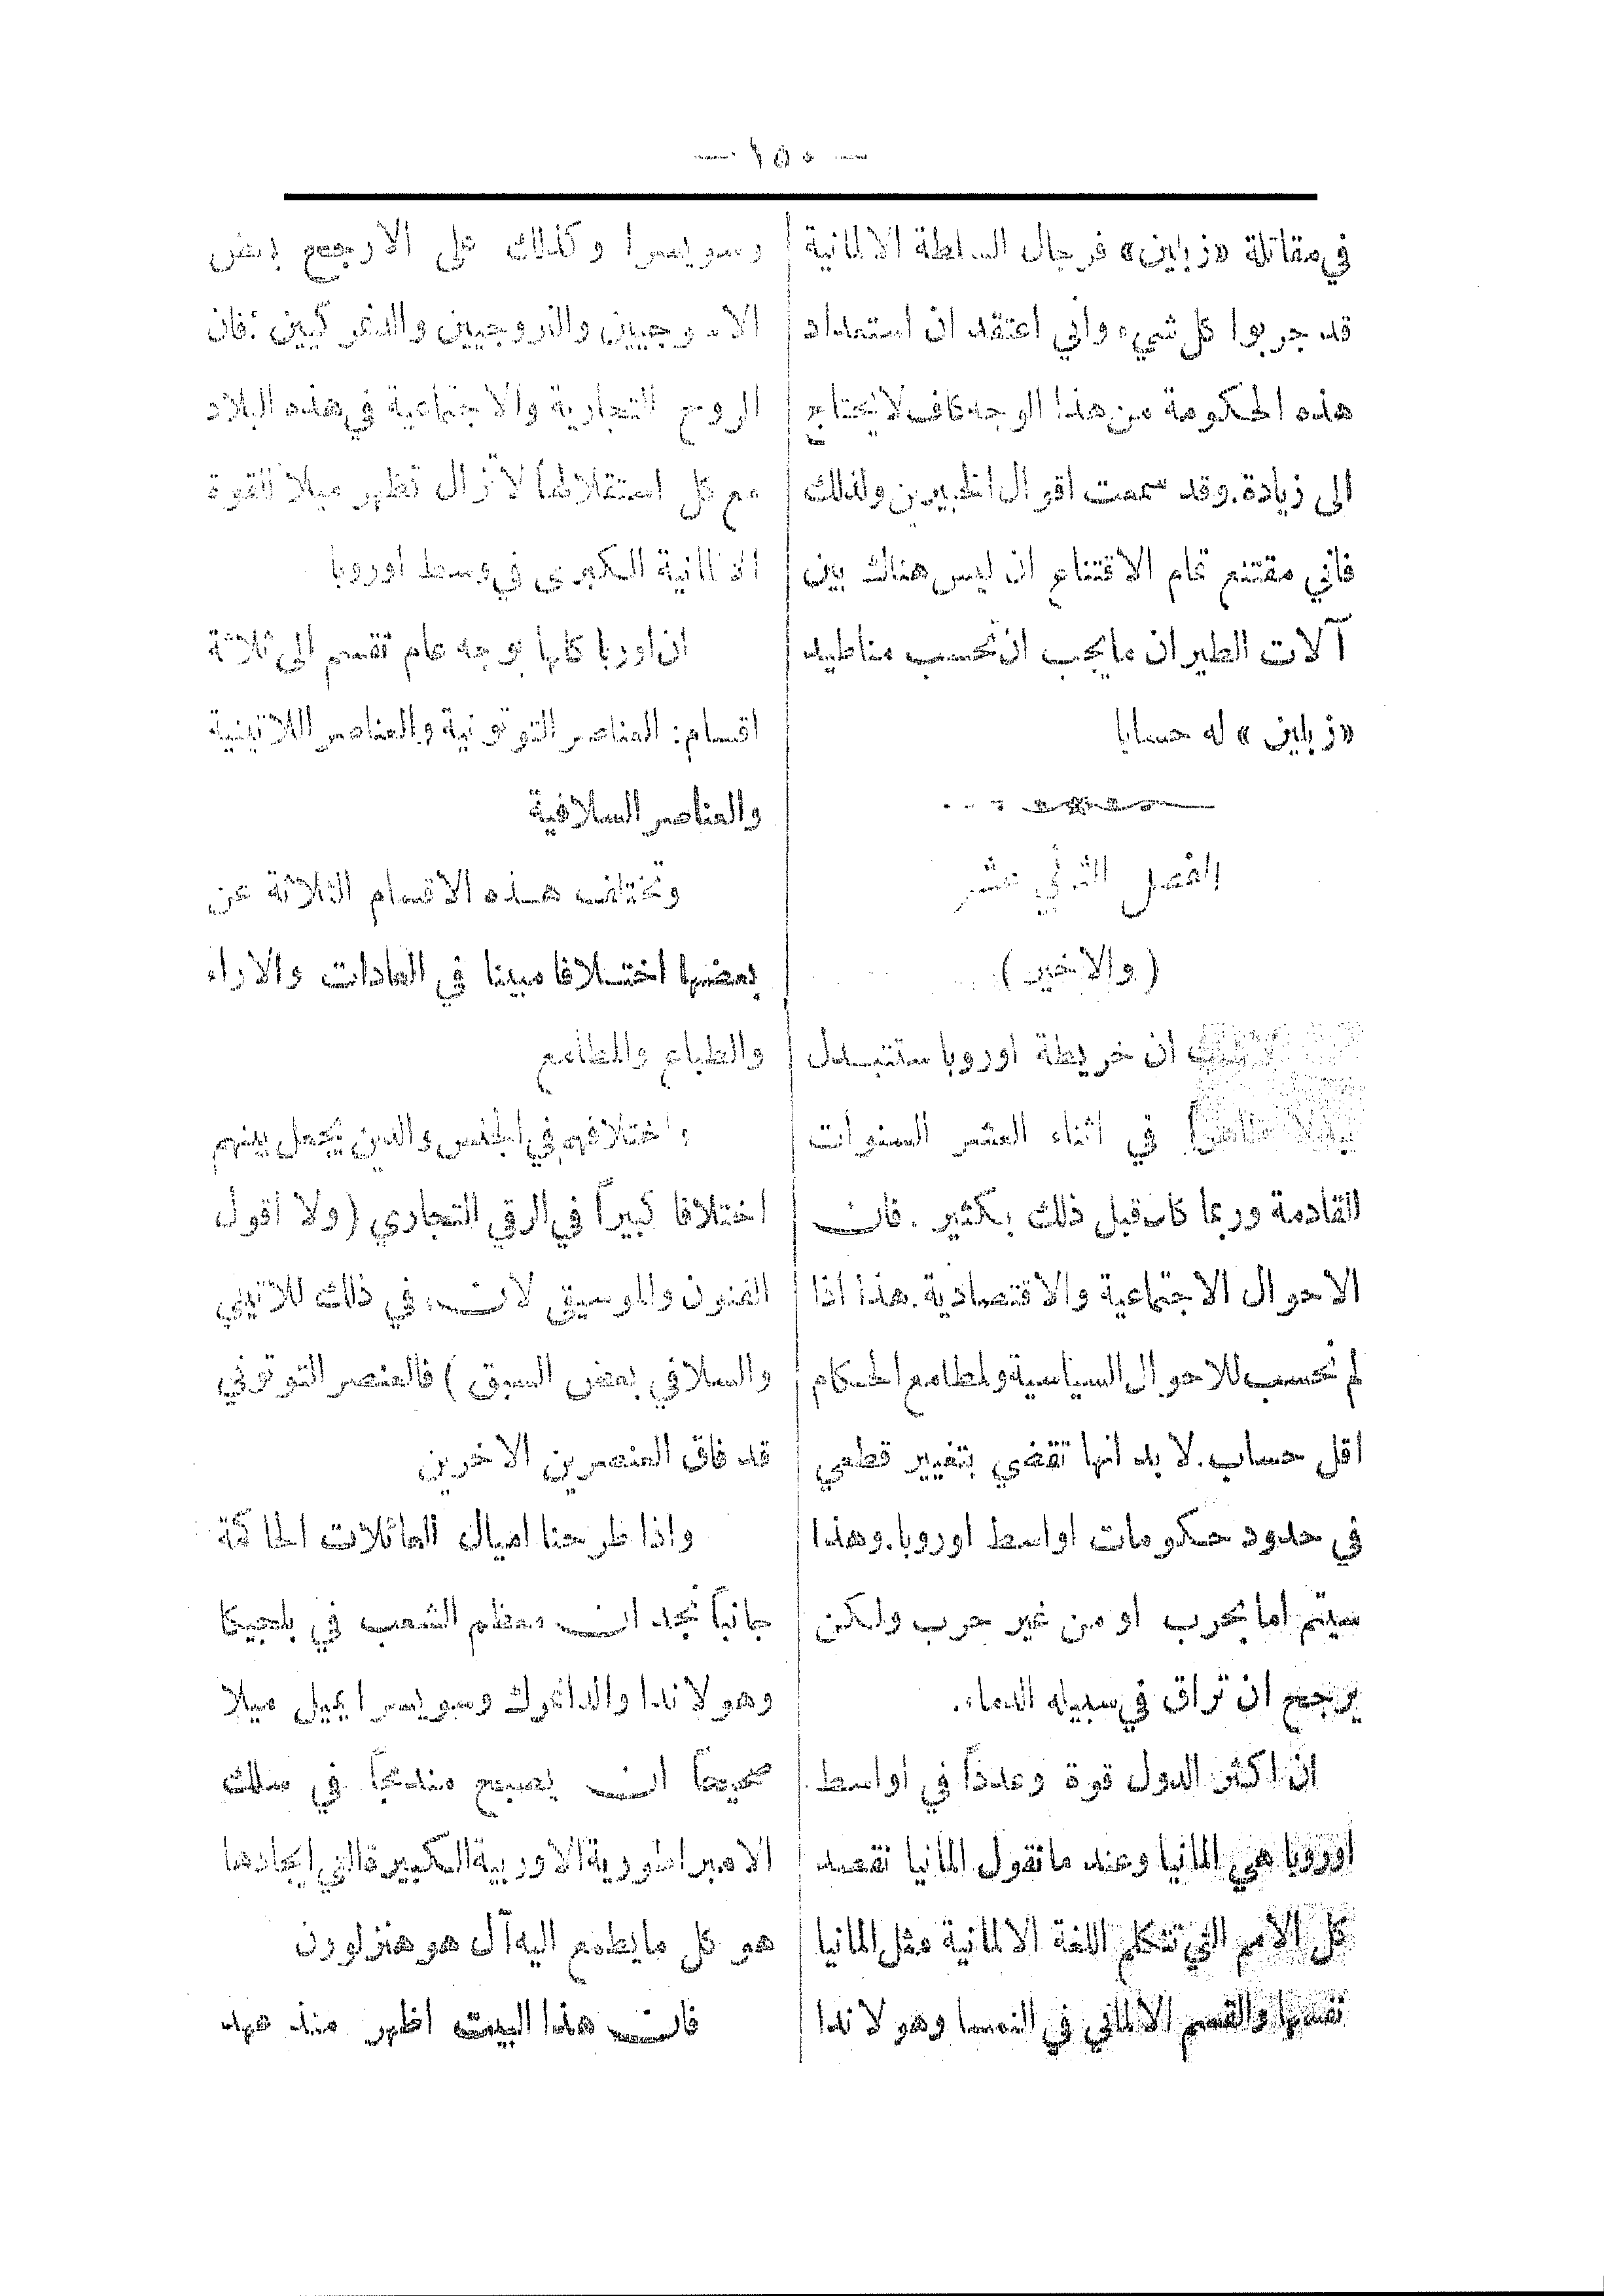 — ١٥٠ —
في مقاتلة «زبلين» فرجال السلطة الالمانية
قد جربوا كل شيء واني اعتقد ان استعداد
هذه الحكومة من هذا الوجه كاف لا يحتاج
الى زيادة. وقد سمعت اقوال الخبيرين ولذلك
فاني مقتنع تمام الاقتناع ان ليس هناك بين
آلات الطيران ما يجب ان تحسب مناطيد
«زبلين» له حسابا
الفصل الثاني عشر
(والاخير)
ان خريطة اوروبا ستتبدل
في اثناء العشر السنوات
القادمة وربما كان قبل ذلك بكثير. فان
الاحوال الاجتماعية والاقتصادية. هذا اذا
لم نحسب للاحوال السياسية ولمطامع الحكام
اقل حساب. لا بد انها تقضي بتغيير قطعي
في حدود حكومات اواسط اوروبا. وهذا
سيتم اما بحرب او من غير حرب ولكن
يرجح ان تراق في سبيله الدماء.
ان اكثر الدول قوة وعددًا في اواسط
اوروبا هي المانيا وعند ما نقول المانيا نقصد
كل الامم التي تتكلم اللغة الالمانية مثل المانيا
نفسها والقسم الالماني في النمسا وهولاندا
وسويسرا وكذلك على الارجح بعض
الاسوجيين والنروجيين والدنمركيين: فان
الروح التجارية والاجتماعية في هذه البلاد
مع كل استقلالها لا تزال تظهر ميلا للقوة
الالمانية الكبرى في وسط اوروبا
ان اوربا كلها بوجه عام تقسم الى ثلاثة
اقسام: العناصر التوتونية والعناصر اللاتينية
والعناصر السلافية
وتختلف هذه الاقسام الثلاثة عن
بعضها اختلافا مبينا في العادات والاراء
والطباع والمطامع
واختلافهم في الجنس والدين يجعل بينهم
اختلافا كبيراً في الرقي التجاري (ولا اقول
الفنون والموسيقى لان في ذلك للاتيني
والسلافي بعض السبق) فالعنصر التوتوني
قد فاق العنصرين الاخرين
واذا طرحنا اميال العائلات الحاكمة
جانباً نجد ان معظم الشعب في بلجيكا
وهولاندا والدانمرك وسويسرا يميل ميلا
صحيحاً ان يصبح مندمجاً في سلك
الامبراطورية الاوربية الكبيرة التي ايجادها
هو كل ما يطمع اليه آل هوهنزلورن
فان هذا البيت اظهر منذ عهد